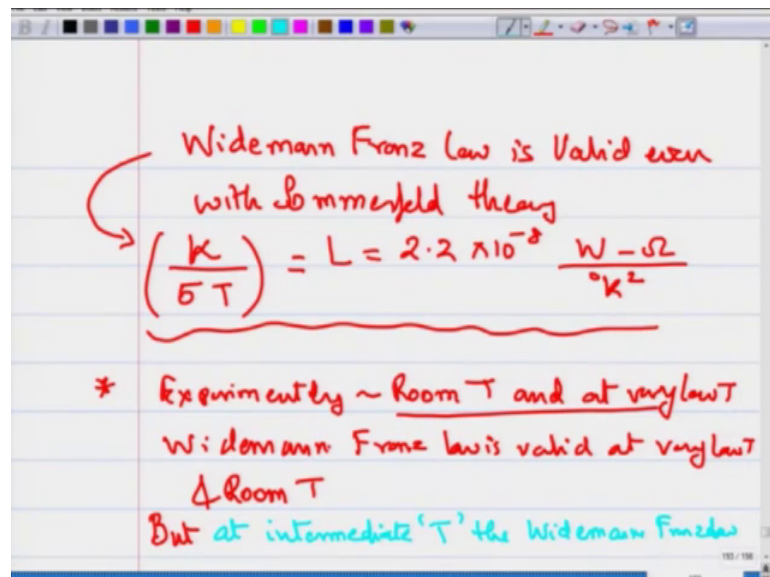 Widemann Franz Law is Valid even
with Sommerfeld theory
(K / σT) = L = 2.2 × 10⁻⁸ W-Ω / °K²
* Experimently ~ Room T and at very low T
Widemann Franz law is valid at very low T
& Room T
But at intermediate 'T' the Widemann Franz law